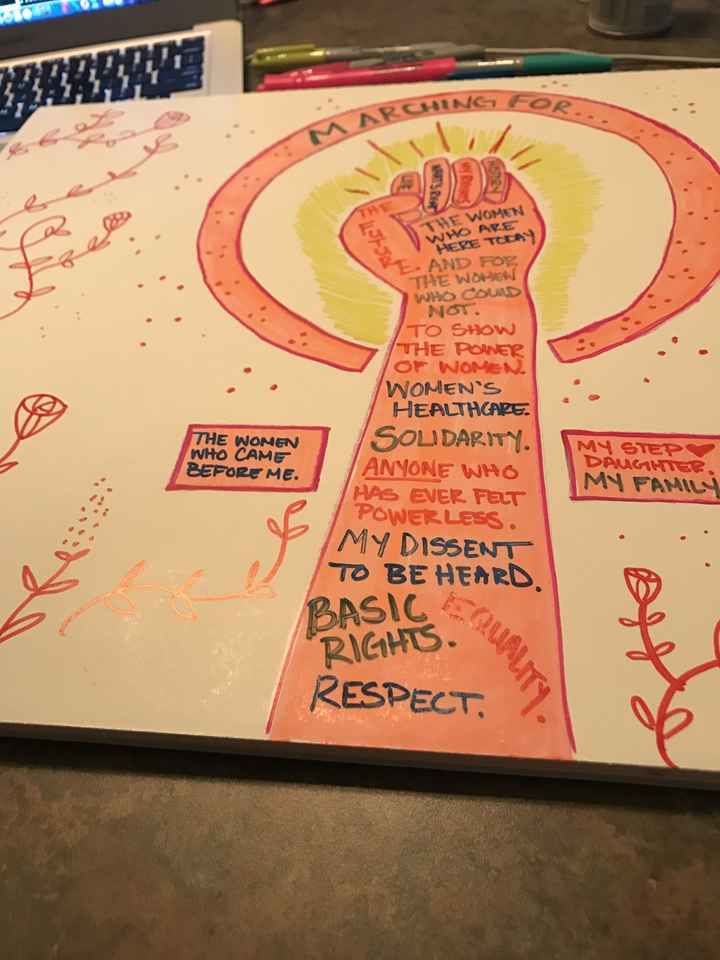 MARCHING FOR...
THE
FUTURE.
THE WOMEN
WHO ARE
HERE TODAY
AND FOR
THE WOMEN
WHO COULD
NOT.
TO SHOW
THE POWER
OF WOMEN.
WOMEN'S
HEALTHCARE.
SOLIDARITY.
ANYONE WHO
HAS EVER FELT
POWERLESS.
MY DISSENT
TO BE HEARD.
BASIC
RIGHTS.
EQUALITY.
RESPECT.
THE WOMEN
WHO CAME
BEFORE ME.
MY STEP
DAUGHTER.
MY FAMILY